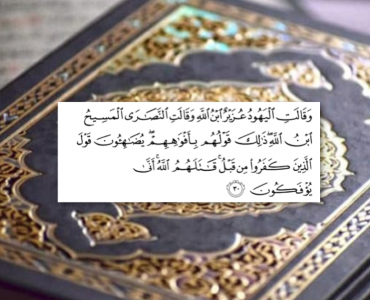 وَقَالَتِ الْيَهُودُ عُزَيْرٌ ابْنُ اللَّهِ وَقَالَتِ النَّصَارَى الْمَسِيحُ
ابْنُ اللَّهِ ۖ ذَٰلِكَ قَوْلُهُم بِأَفْوَاهِهِمْ ۖ يُضَاهِئُونَ قَوْلَ
الَّذِينَ كَفَرُوا مِن قَبْلُ ۚ قَاتَلَهُمُ اللَّهُ ۚ أَنَّىٰ
يُؤْفَكُونَ ﴿٣٠﴾